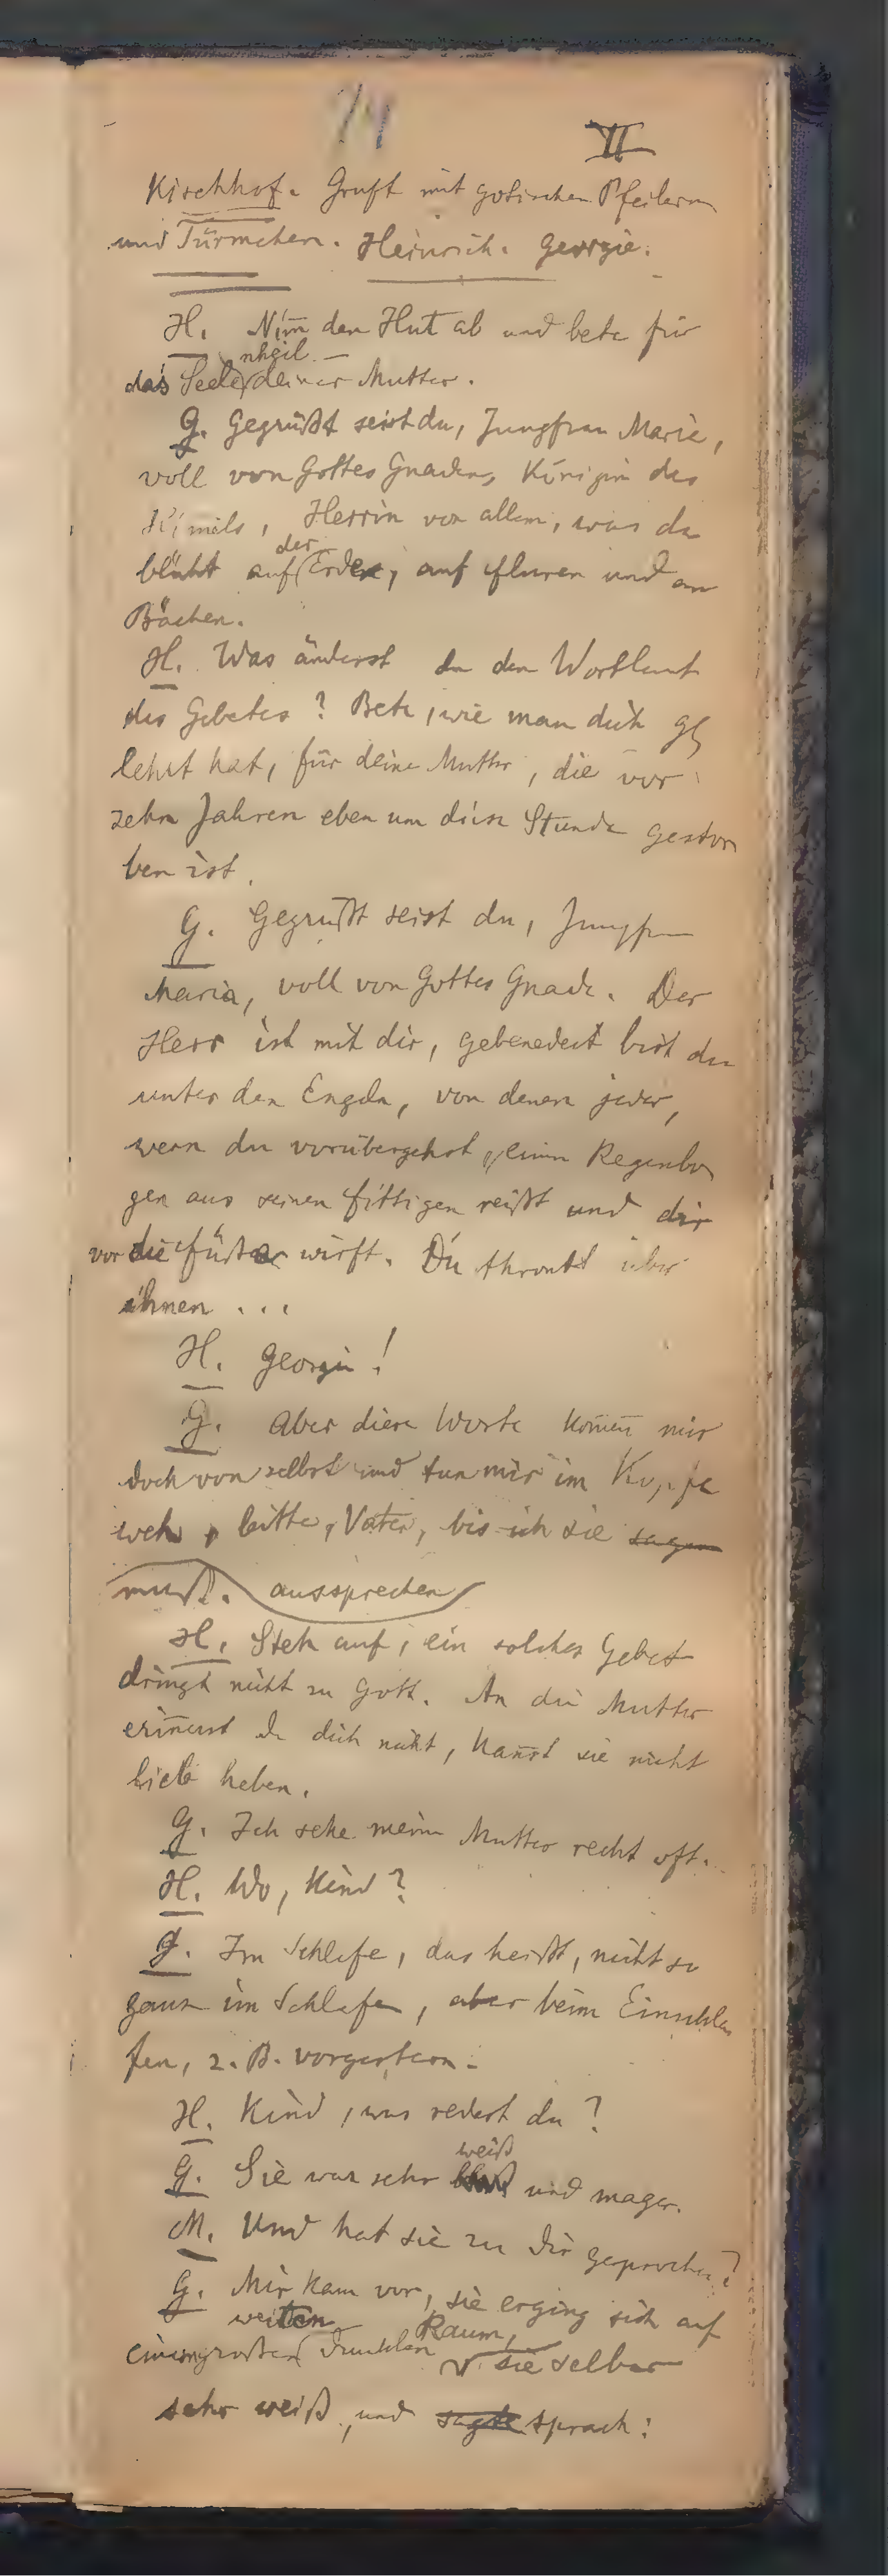 74
II
Kirchhof. Gruft mit gotischen Pfeilern
und Türmchen. Heinrich. Georgie.
H. Nim̅ den Hut ab und bete für
das Seelenheil deiner Mutter.
G. Gegrüßt seist du, Jungfrau Marie,
voll von Gottes Gnaden, Königin des
Him̅els, Herrin von allem, was da
blüht auf der Erde, auf Fluren und an
Bächen.
H. Was änderst du den Wortlaut
des Gebetes? Bete, wie man dich ge
lehrt hat, für deine Mutter, die vor
zehn Jahren eben um diese Stunde gestor
ben ist.
G. Gegrüßt seist du, Jungfrau
Maria, voll von Gottes Gnade. Der
Herr ist mit dir, gebenedeit bist du
unter den Engeln, von denen jeder,
wenn du vorübergehst, einen Regenbo
gen aus seinen Fittigen reißt und dir
vor die Füße wirft. Du thronst über
ihnen ...
H. Georgie!
G. Aber diese Worte kom̅en mir
doch von selbst und tun mir im Kopfe
weh, bitte, Vater, bis ich sie sagen
muß. aussprechen
H. Steh auf, ein solches Gebet
dringt nicht zu Gott. An die Mutter
erin̅erst du dich nicht, kan̅st sie nicht
lieb haben.
G. Ich sehe meine Mutter recht oft.
H. Wo, Kind?
G. Im Schlafe, das heißt, nicht so
ganz im Schlafe, aber beim Einschla
fen, z. B. vorgestern.
H. Kind, was redest du?
G. Sie war sehr weiß und mager.
M. Und hat sie zu dir gesprochen?
G. Mir kam vor, sie erging sich auf
weiten Raum,
einem großen dunklen sie selber
sehr weiß, und sagte sprach: